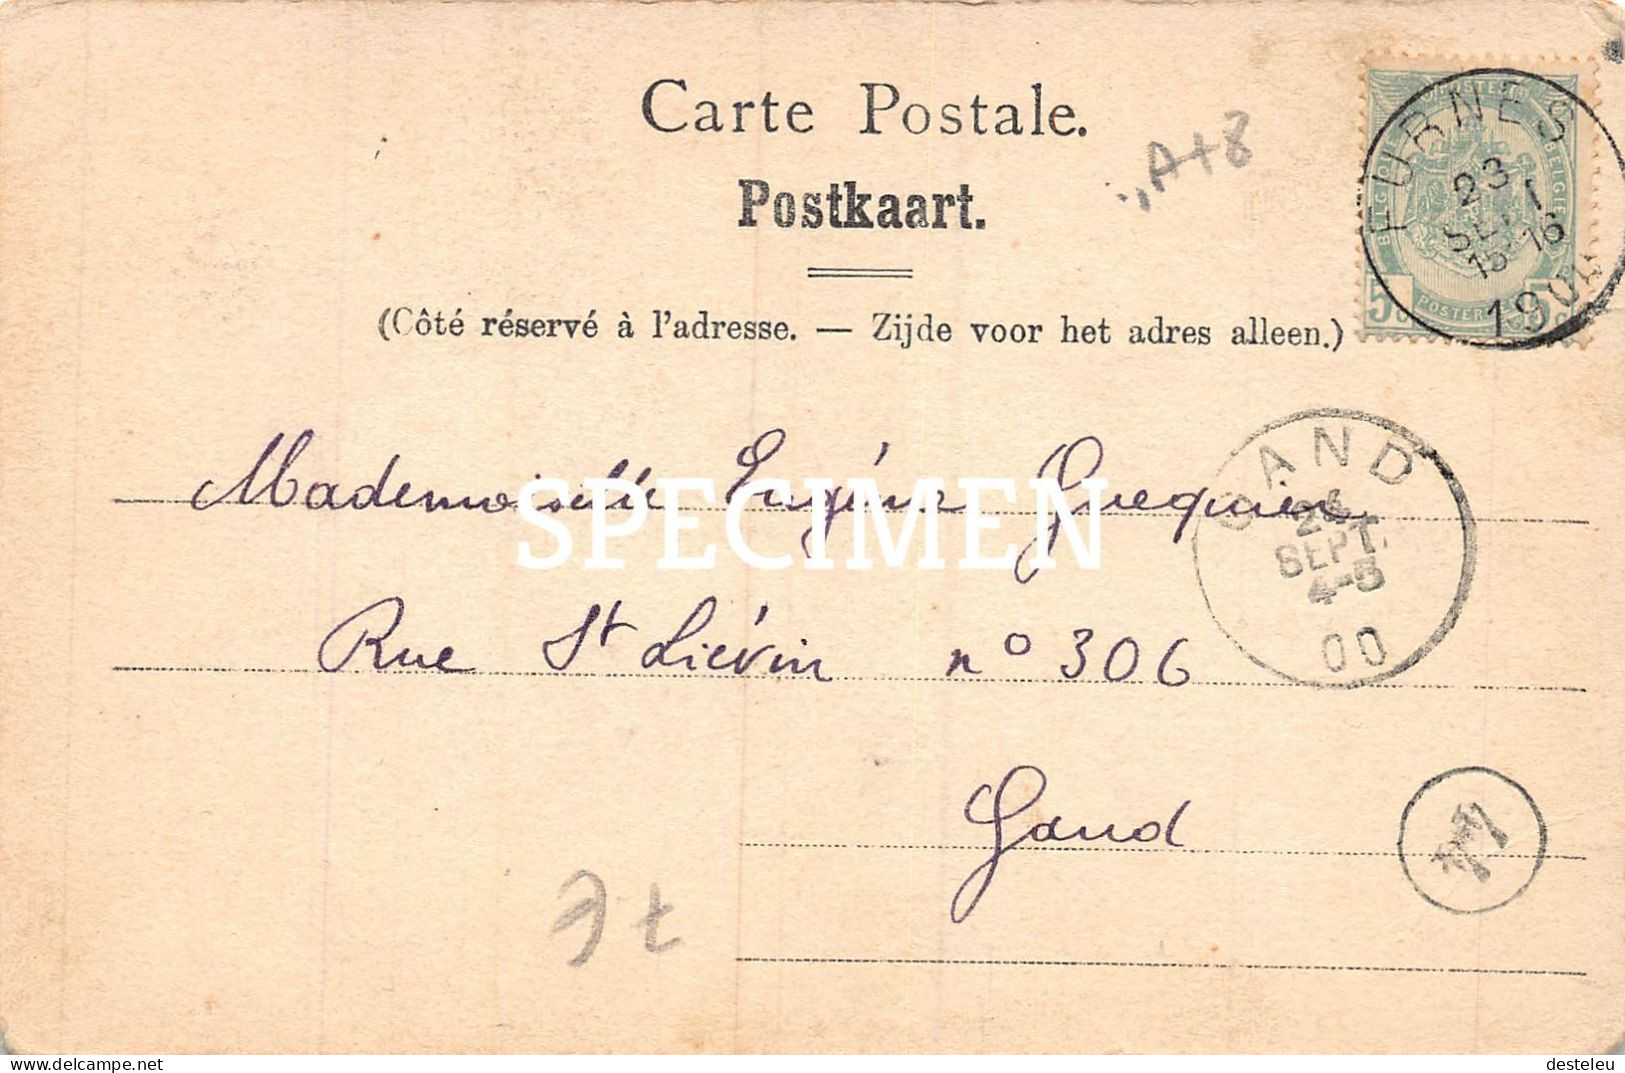 Carte Postale.
Postkaart.
(Côté réservé à l'adresse. — Zijde voor het adres alleen.)
FURNES
23
SEPT
15-16
1900
BELGIQUE
BELGIE
POSTERIJEN
5c 5c
A+8
Mademoiselle Eugénie Guequier
SPECIMEN
Rue St Liévin n° 306
GAND
24
SEPT.
4-5
00
Gand
desteleu